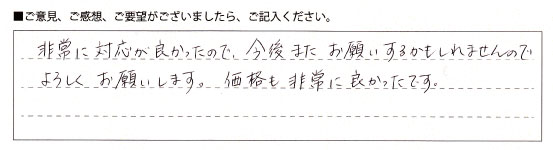 ■ご意見、ご感想、ご要望がございましたら、ご記入ください。
非常に対応が良かったので、今後またお願いするかもしれませんので
よろしくお願いします。価格も非常に良かったです。